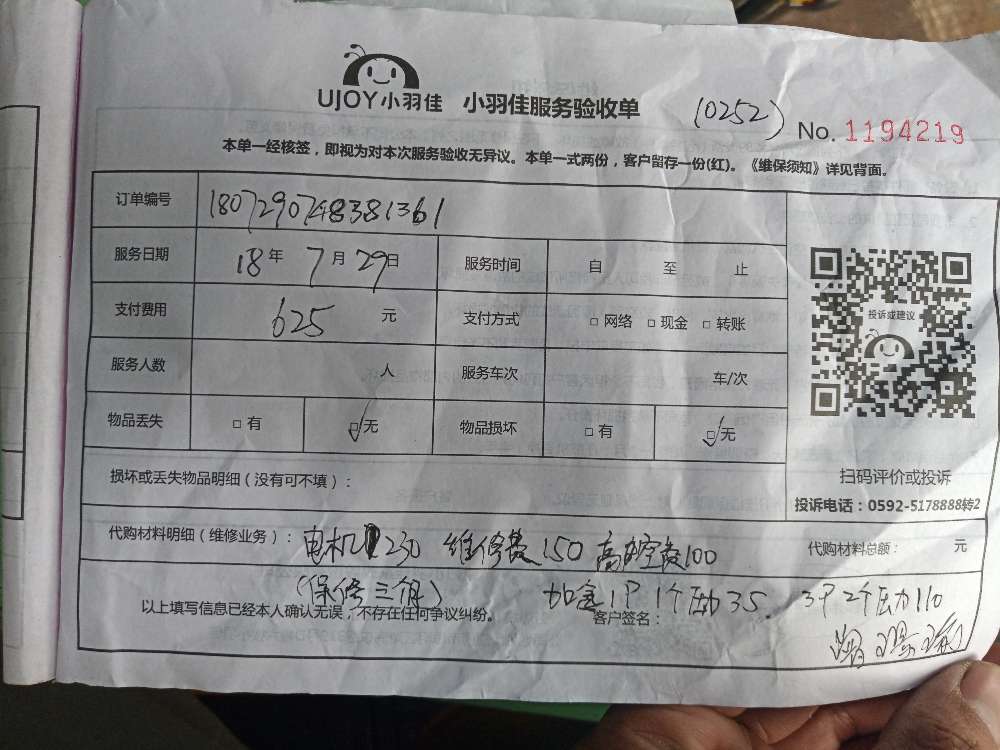 UJOY小羽佳 小羽佳服务验收单 (0252) No. 1194219
本单一经核签，即视为对本次服务验收无异议。本单一式两份，客户留存一份(红)。《维保须知》详见背面。
订单编号 1807290748381361
服务日期 18年 7月29日 服务时间 自 至 止
支付费用 625 元 支付方式 □网络 □现金 □转账
投诉或建议
服务人数 人 服务车次 车/次
物品丢失 □有 ☑无 物品损坏 □有 ☑无
扫码评价或投诉
损坏或丢失物品明细（没有可不填）：
投诉电话：0592-5178888转2
代购材料明细（维修业务）： 电机 230 维修费150 高空费100 代购材料总额： 元
(保修三个月) 加氟1P 1个压力35. 3P 2个压力110
以上填写信息已经本人确认无误，不存在任何争议纠纷。 客户签名：